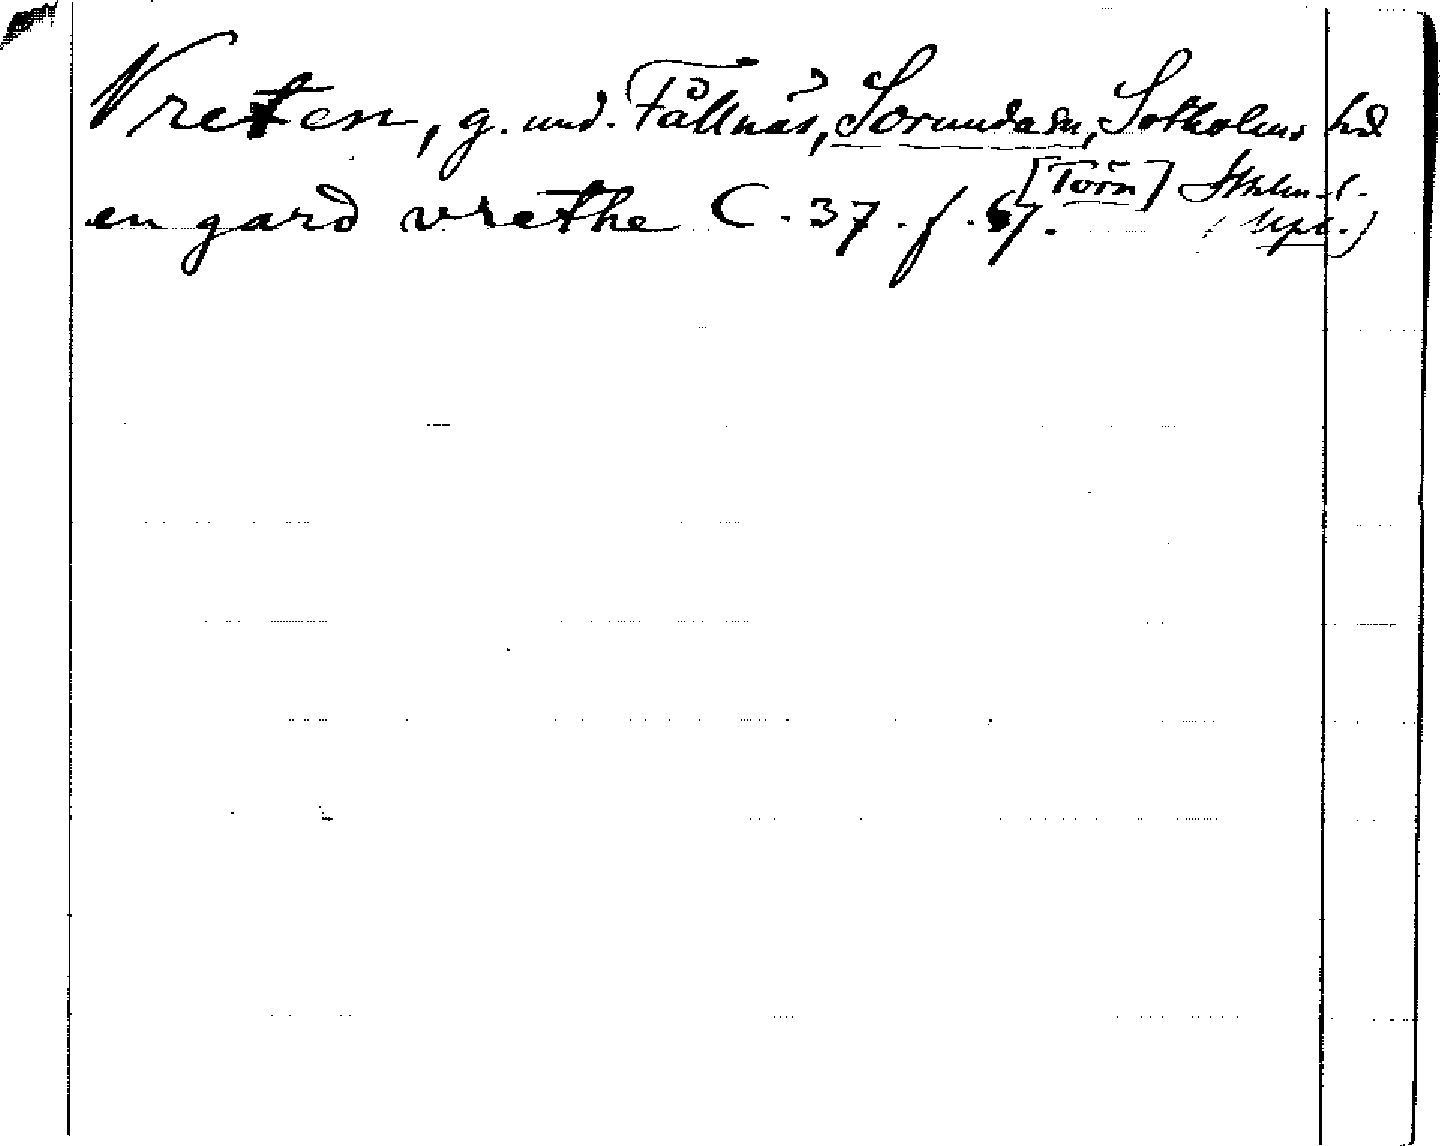 Vreten, g. und. Fållnäs, Sorunda sn, Sotholms hd
[Torn] Sthlm l.
en gard vrethe C. 37. f. 67. (Upl.)